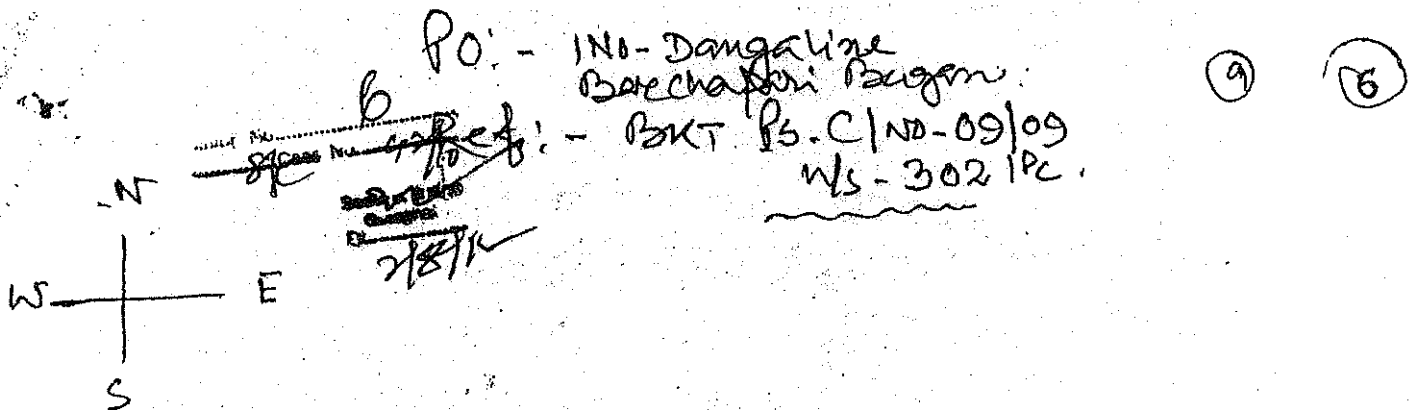 PO:- 1No-Dangaline
Borechapori Bagan.
9 6
6
Case No.
Ref:- BKT PS. C/NO-09/09
U/s - 302 IPC.
2/8/12
N
W E
S